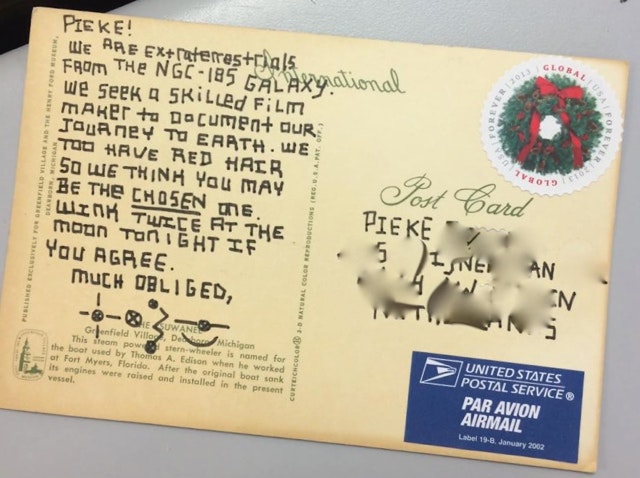 PIEKE!
WE ARE EXtrAterrestrIAls
FROM THE NGC-185 GALAXY.
WE SEEK A SKILLED FILM
MAKER to DOCUMENT OUR
JOURNEY TO EARTH. WE
TOO HAVE RED HAIR
SO WE THINK YOU MAY
BE THE CHOSEN ONE.
WINK TWICE AT THE
MOON TONIGHT IF
YOU AGREE.
MUCH OBLIGED,
International
Post Card
PUBLISHED EXCLUSIVELY FOR GREENFIELD VILLAGE AND THE HENRY FORD MUSEUM,
DEARBORN, MICHIGAN
THE SUWANEE
Greenfield Village, Dearborn, Michigan
This steam powered stern-wheeler is named for
the boat used by Thomas A. Edison when he worked
at Fort Myers, Florida. After the original boat sank
its engines were raised and installed in the present
vessel.
CURTEICHCOLOR® 3-D NATURAL COLOR REPRODUCTIONS (REG. U.S.A. PAT. OFF.)
GLOBAL USA FOREVER 2013 GLOBAL USA FOREVER 2013
PIEKE
UNITED STATES
POSTAL SERVICE®
PAR AVION
AIRMAIL
Label 19-B, January 2002